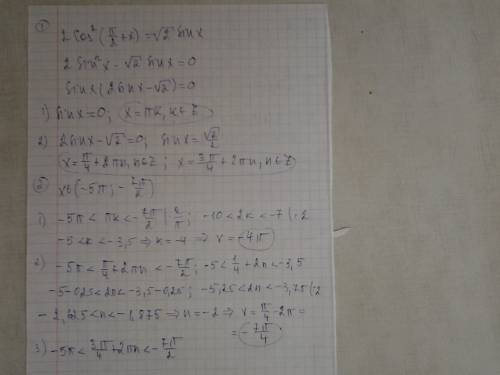 ①
2cos²(π/2+x)=√2 sinx
2sin²x-√2 sinx=0
sinx(2sinx-√2)=0
1) sinx=0; x=πk, k∈Z
2) 2sinx-√2=0; sinx=√2/2
x=π/4+2πn, n∈Z; x=3π/4+2πn, n∈Z
② x∈(-5π; -7π/2)
1) -5π<πk<-7π/2 |·2/π; -10<2k<-7 |:2
-5<k<-3,5⇒k=-4 ⇒ x=-4π
2) -5π<π/4+2πn<-7π/2; -5<1/4+2n<-3,5
-5-0,25<2n<-3,5-0,25; -5,25<2n<-3,75 |:2
-2,625<n<-1,875⇒n=-2⇒x=π/4-2π=
=-7π/4
3) -5π<3π/4+2πn<-7π/2